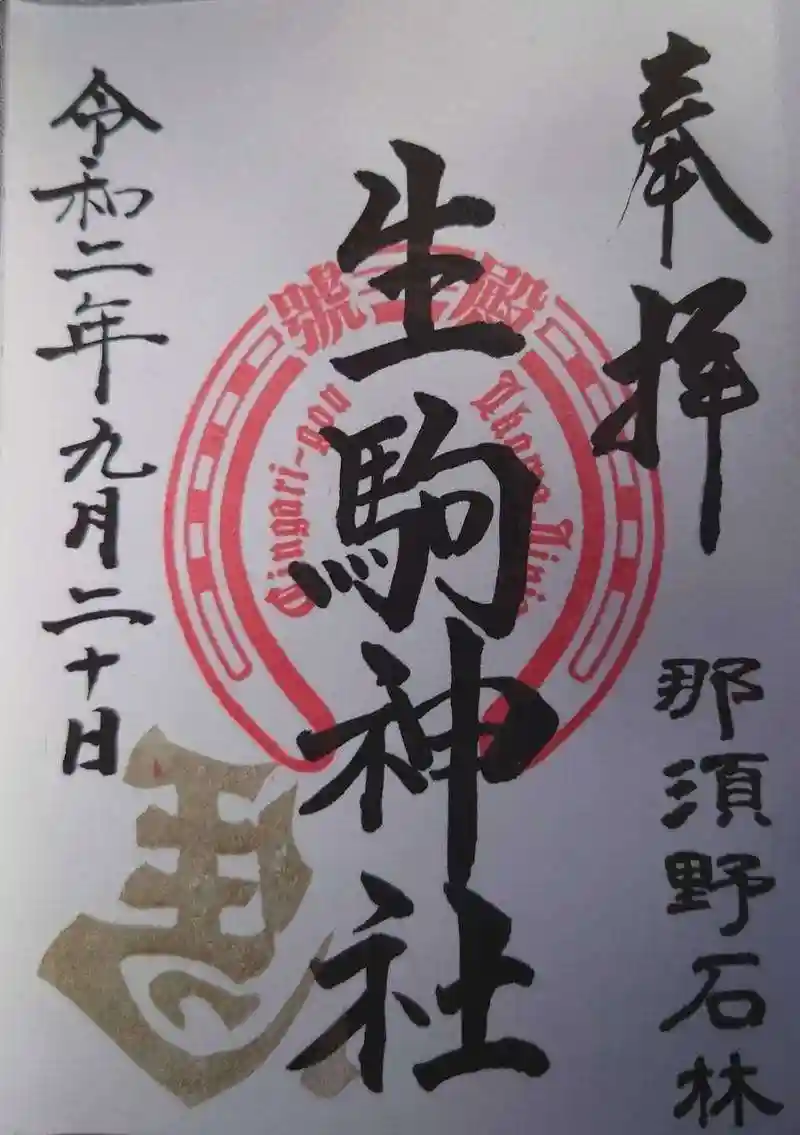 奉拝
那須野石林
生駒神社
號王殿
Oingari-gou
Ikoma Jinja
令和二年九月二十日